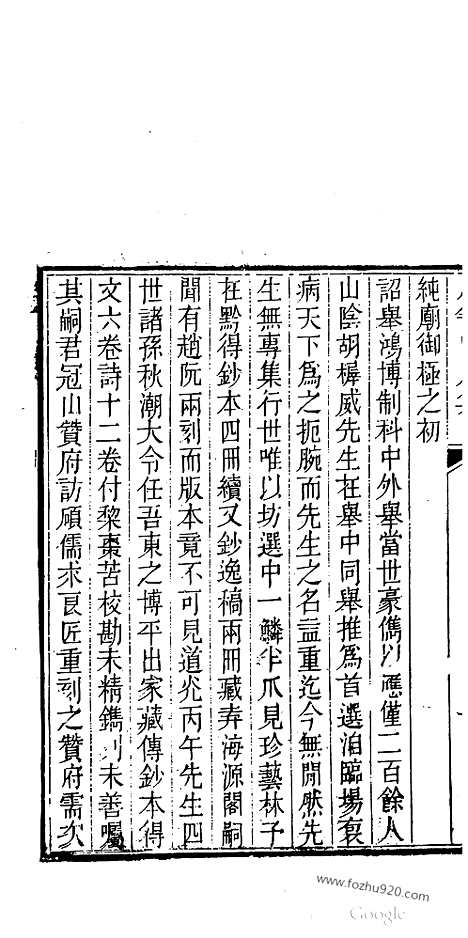 純廟御極之初
詔舉鴻博制科中外舉當世豪儁以應僅二百餘人
山陰胡樨威先生在舉中同舉推為首選洎臨場裒
病天下為之扼腕而先生之名益重迄今無閒然先
生無專集行世唯以坊選中一鱗半爪見珍藝林予
在黔得鈔本四冊續又鈔逸稿兩冊藏弆海源閣嗣
聞有趙阮兩刻而版本竟不可見道光丙午先生四
世諸孫秋潮大令任吾東之博平出家藏傳鈔本得
文六卷詩十二卷付黎棗苦校勘未精鐫刊未善囑
其嗣君冠山贊府訪碩儒求良匠重刻之贊府需次
www.fozhu920.com
Google